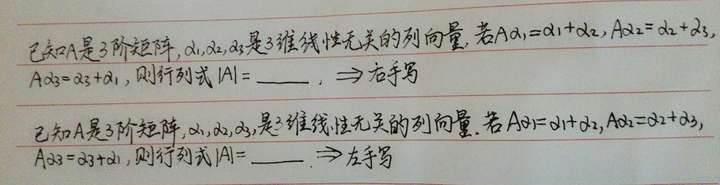 已知A是3阶矩阵,α1,α2,α3是3维线性无关的列向量,若Aα1=α1+α2,Aα2=α2+α3,
Aα3=α3+α1,则行列式|A|=____. ⇒右手写
已知A是3阶矩阵,α1,α2,α3,是3维线性无关的列向量.若Aα1=α1+α2,Aα2=α2+α3,
Aα3=α3+α1,则行列式|A|=____. ⇒左手写